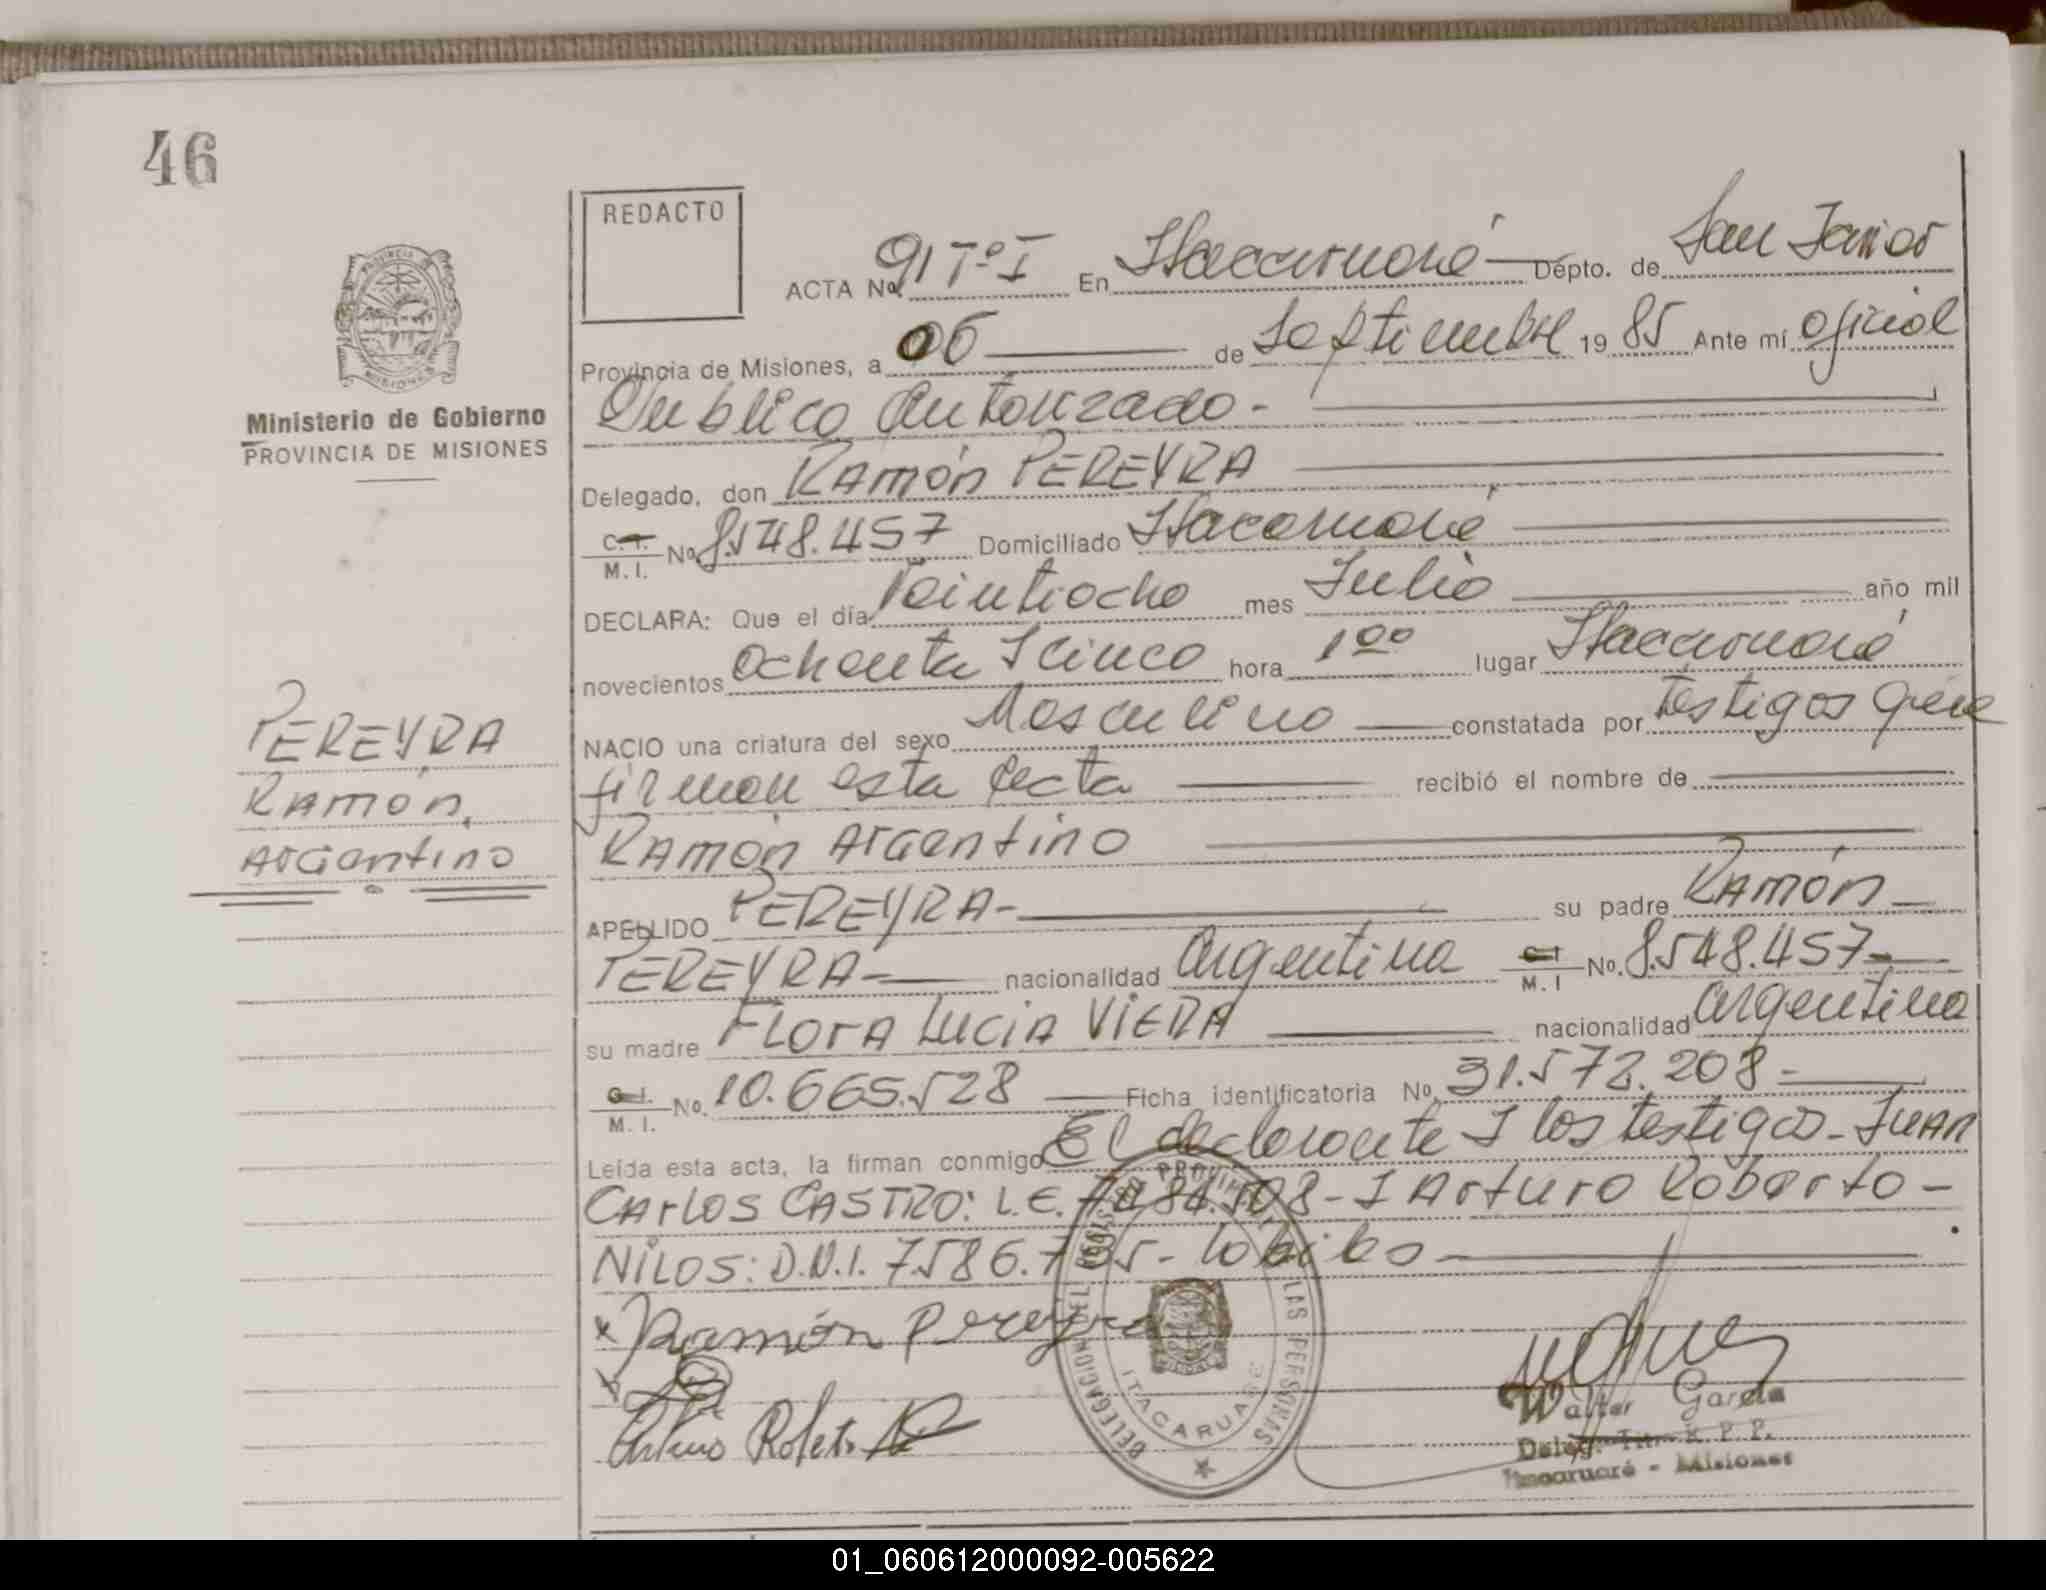 46
REDACTO
ACTA No. 91 Tº I En Itacaruaré Dépto. de San Javier
Provincia de Misiones, a 06 de Septiembre 19 85 Ante mí oficial
Publico Autorizado -
Ministerio de Gobierno
PROVINCIA DE MISIONES
Delegado, don RAMÓN PEREYRA
C. I. M. I. No. 8.548.457 Domiciliado Itacaruaré
DECLARA: Que el día Veintiocho mes Julio año mil
novecientos ochenta I cinco hora 1 00 lugar Itacaruaré
NACIO una criatura del sexo Masculino constatada por testigos que
firman esta acta recibió el nombre de
RAMÓN ArGentino
PEREYRA
RAMÓN,
ArGentino
APELLIDO PEREYRA - su padre RAMÓN
PEREYRA - nacionalidad argentina C. I M. I No. 8.548.457 -
su madre FLOrA LUCIA VIERA nacionalidad argentina
C. I. M. I. No. 10.665.528 Ficha identificatoria No. 31.572.208 -
Leída esta acta, la firman conmigo El declarante I los testigos - JUAN
CArLOS CASTRO: L.E. I Arturo Roberto -
NILOS: D.N.I.
Ramón Pereyra
Arturo Roberto
DELEGACION DEL REGISTRO PROVINCIAL LAS PERSONAS
ITACARUARE
Walter García
Deleg. Tit. R. P. P.
Itacaruaré - Misiones
01_060612000092-005622